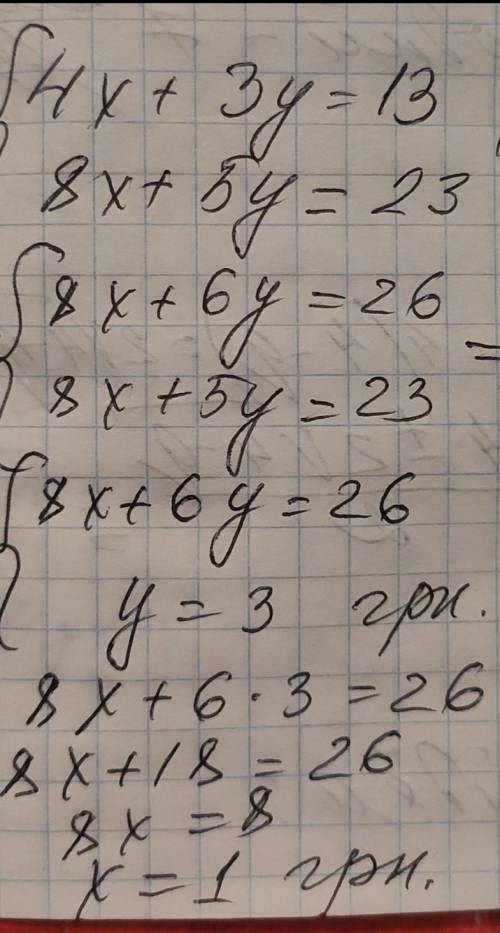 4x + 3y = 13
8x + 5y = 23
8x + 6y = 26
8x + 5y = 23
8x + 6y = 26
y = 3 грн.
8x + 6 · 3 = 26
8x + 18 = 26
8x = 8
x = 1 грн.